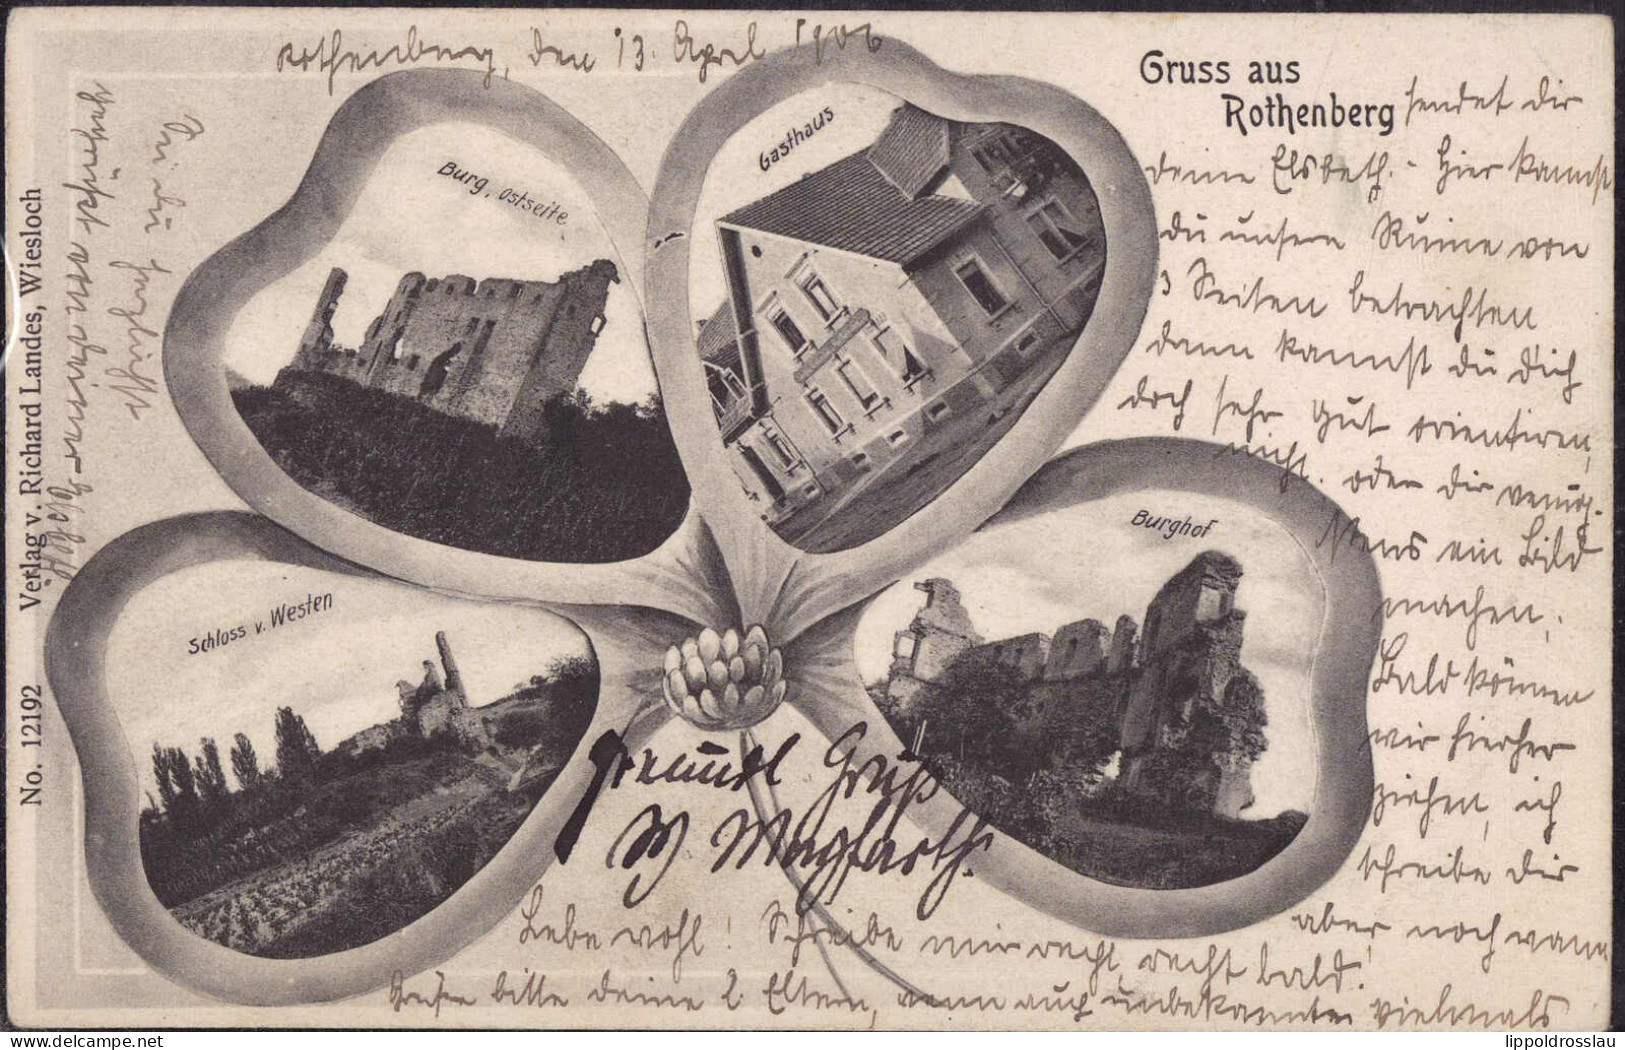 Rothenberg, den 13. April 1906
Gruss aus
Rothenberg
sendet dir
deine Elsbeth. - Hier kannst
du unsere Ruine von
3 Seiten betrachten
dann kannst du dich
doch sehr gut orientiren,
nicht. oder dir
ein Bild
machen.
Bald können
wir hierher
ziehen, ich
schreibe dir
aber noch wann
Burg, Ostseite.
Gasthaus
Schloss v. Westen
Burghof
Freundl Gruß
Lebe wohl! Schreibe mir recht, recht bald!
Grüße bitte deine l. Eltern, wenn auch unbekannter vielmals
Sei du herzlichst
geküßt von deiner
No. 12192 Verlag v. Richard Landes, Wiesloch
lippoldrosslau